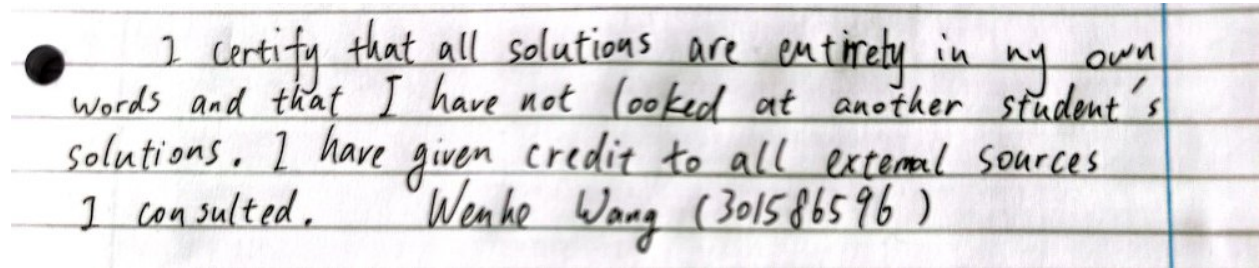 I certify that all solutions are entirely in my own
words and that I have not looked at another student's
solutions. I have given credit to all external sources
I consulted. Wenhe Wang (301586596)